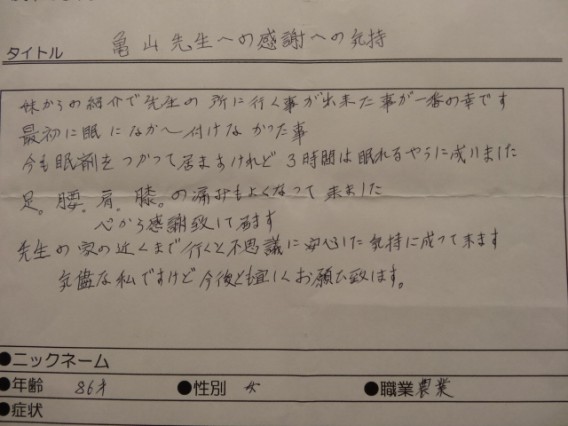 タイトル 亀山先生への感謝への気持
妹からの紹介で先生の所に行く事が出来た事が一番の幸です
最初に眠になか〜付けなかった事
今も眠剤をつかって居まあけれど3時間は眠れるやうに成いました
足。腰。肩。膝。の痛みもよくなって来ました
心から感謝致して居ます
先生の家の近くまで行くと不思議に安心した気持に成って来ます
気儘な私ですけど今後とも宜しくお願ひ致します。
●ニックネーム
●年齢 86才 ●性別 女 ●職業 農業
●症状